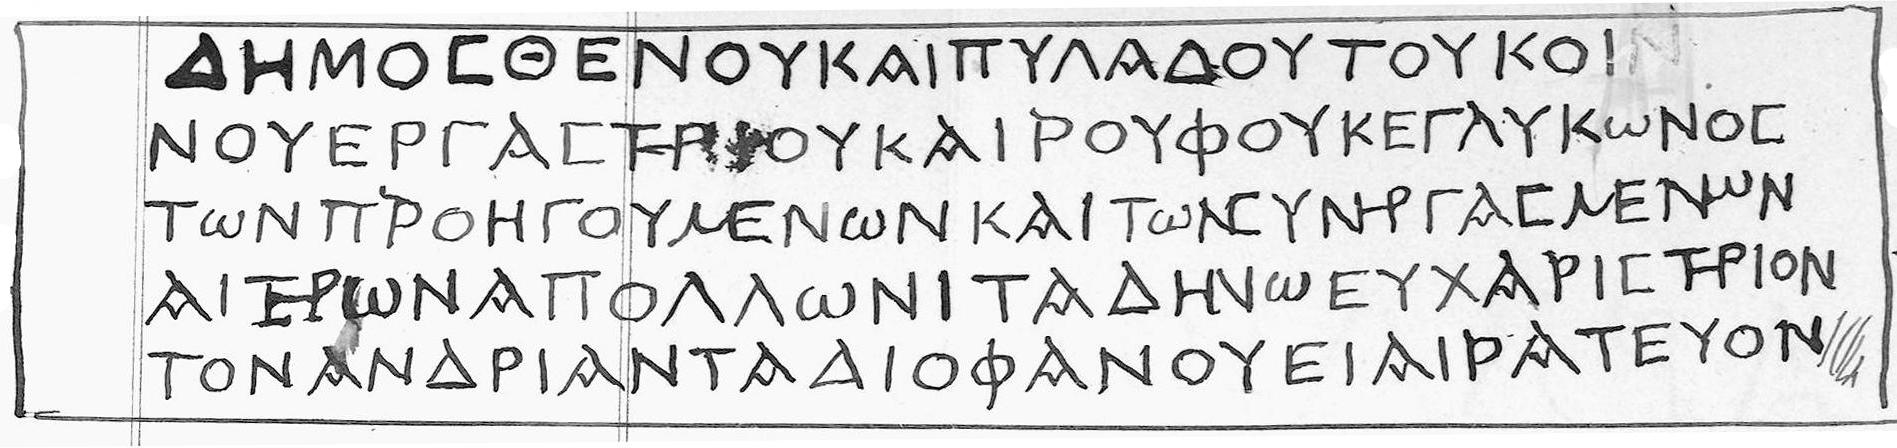 ΔΗΜΟΣΘΕΝΟΥΚΑΙΠΥΛΑΔΟΥΤΟΥΚΟΙΝ
ΝΟΥΕΡΓΑΣΤΗΡΙΟΥΚΑΙΡΟΥΦΟΥΚΕΓΛΥΚωΝΟΣ
ΤωΝΠΡΟΗΓΟΥΜΕΝωΝΚΑΙΤωΝΣΥΝΗΡΓΑΣΜΕΝωΝ
ΑΙΤΗΡωΝΑΠΟΛΛωΝΙΤΑΔΗΝωΕΥΧΑΡΙΣΤΗΡΙΟΝ
ΤΟΝΑΝΔΡΙΑΝΤΑΔΙΟΦΑΝΟΥΕΙΑΙΡΑΤΕΥΟΝ